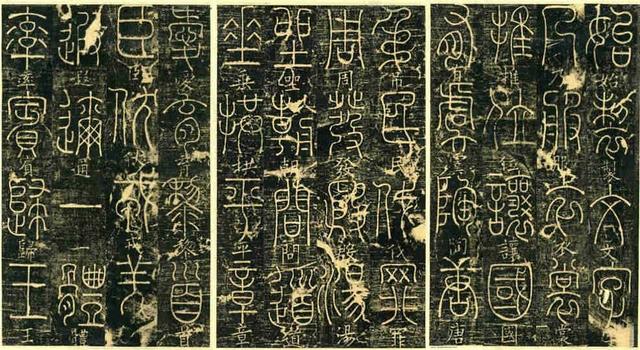 始制文字
乃服衣裳
推位讓國
有虞陶唐
弔民伐罪
周發殷湯
坐朝問道
垂拱平章
愛育黎首
臣伏戎羌
遐邇一體
率賓歸王